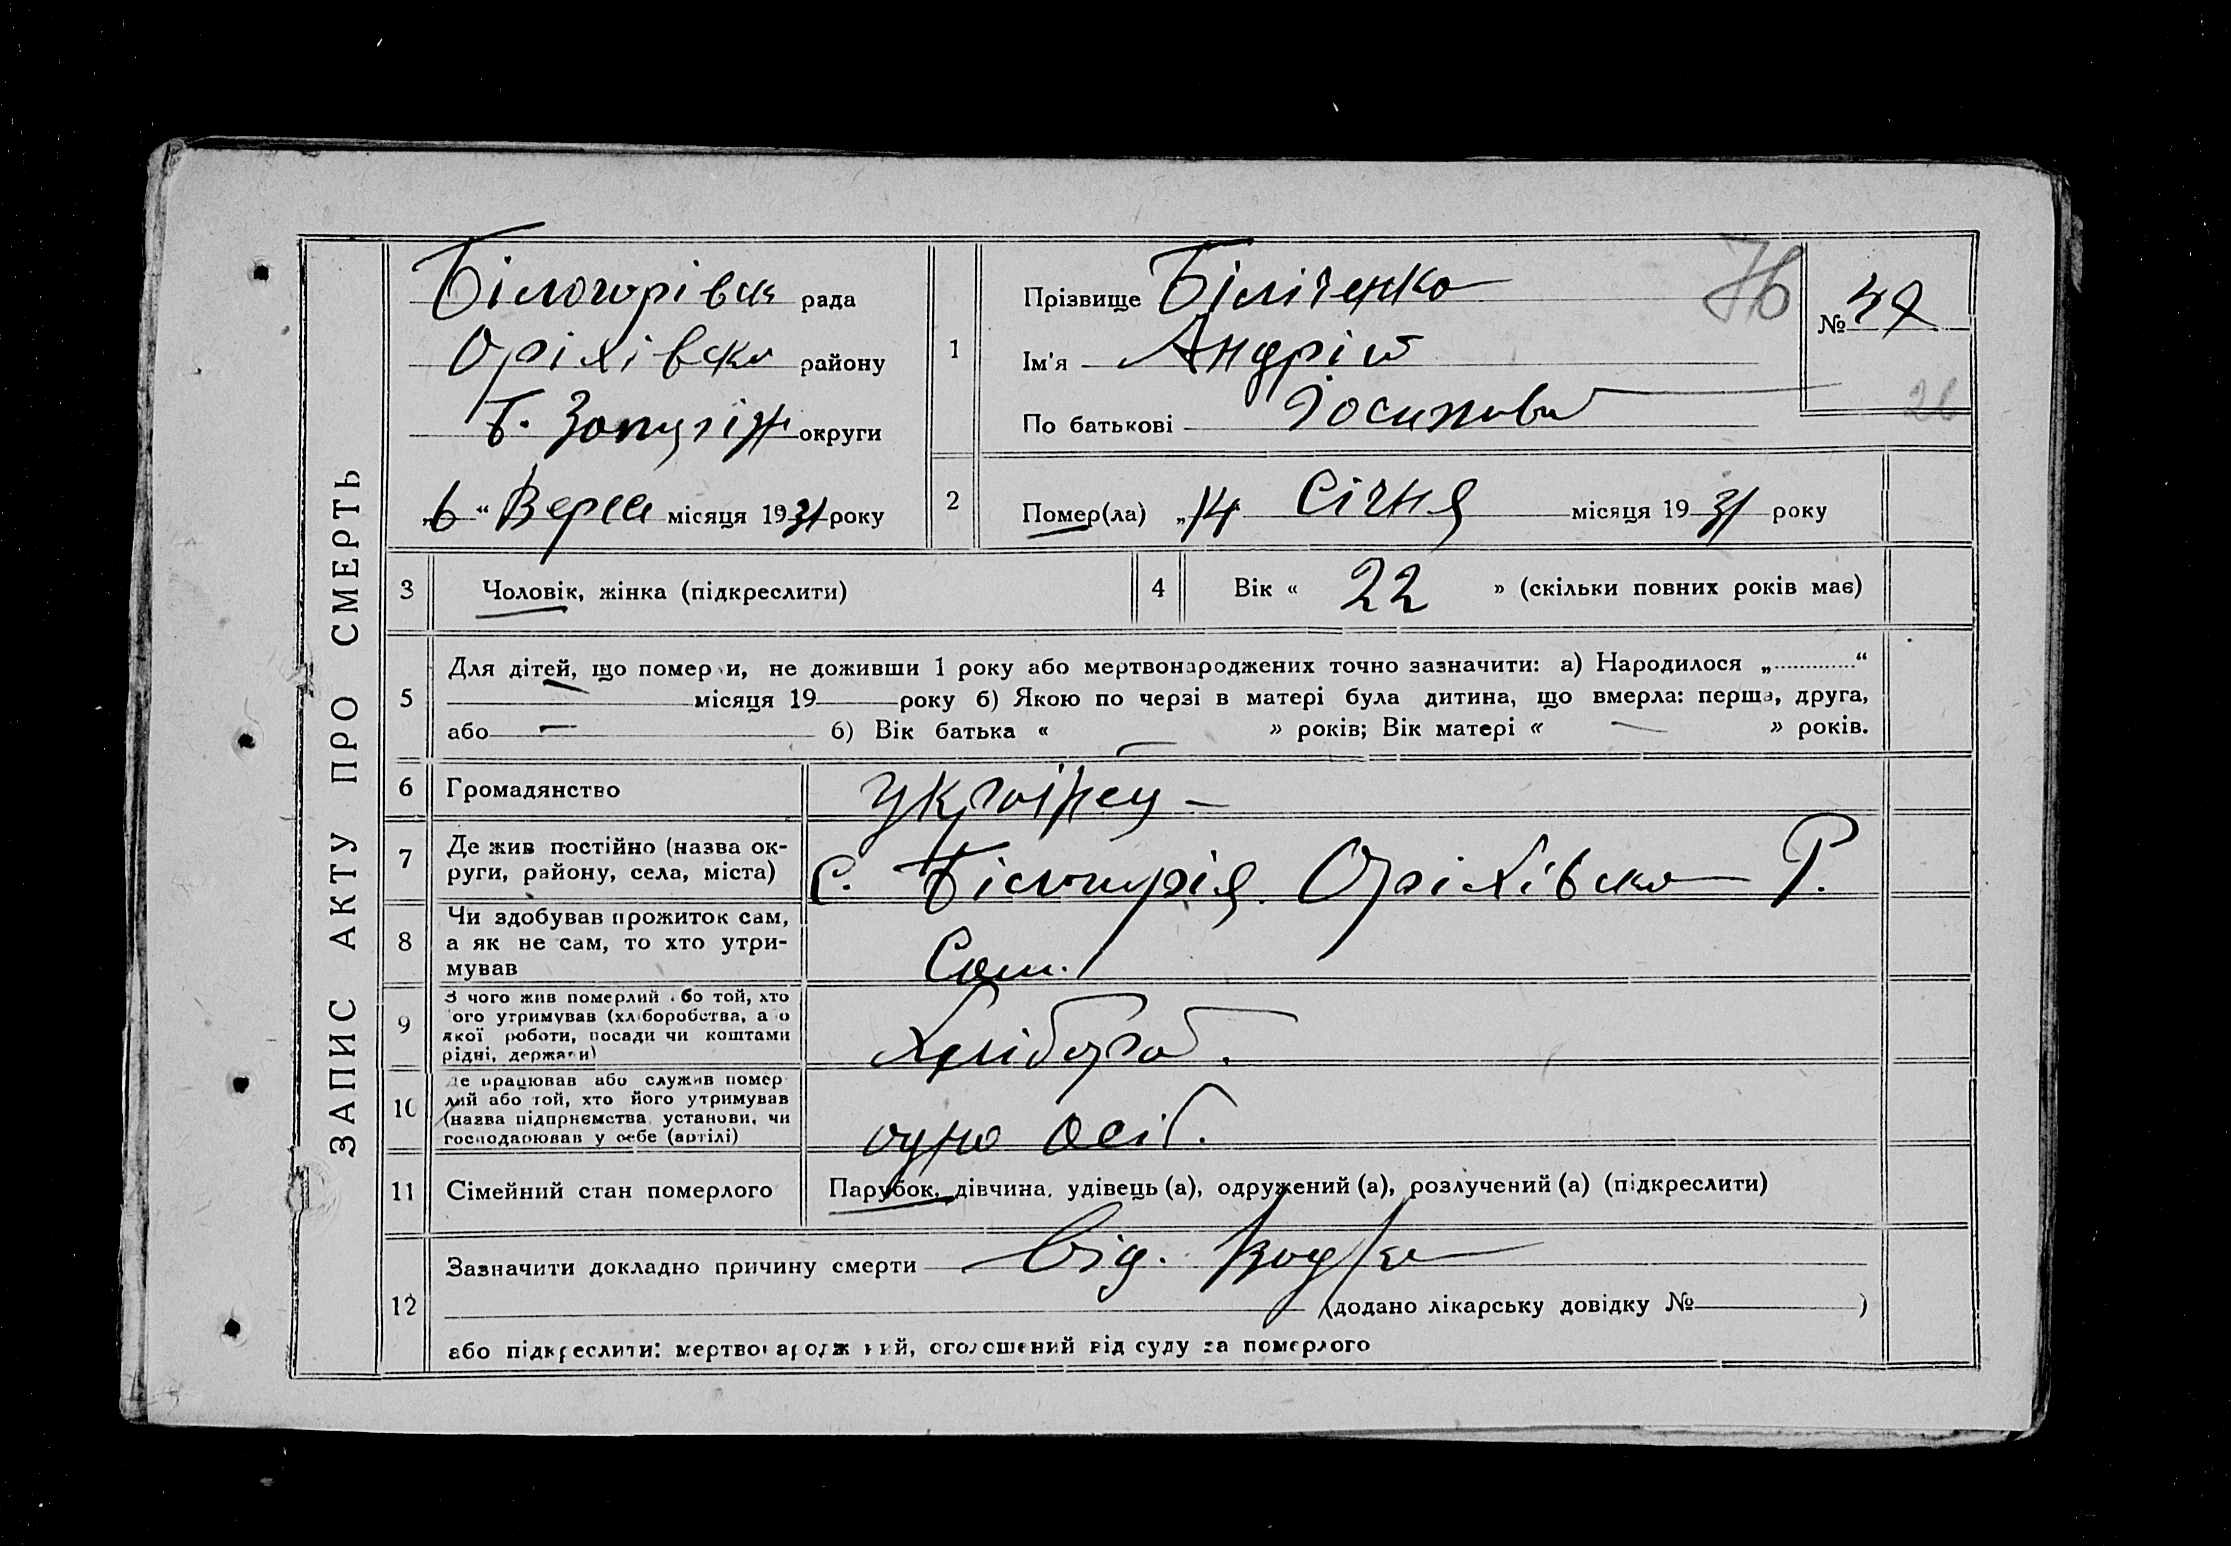 ЗАПИС АКТУ ПРО СМЕРТЬ
Білогорівск рада
Оріхівско району
Б. Запоріж округи
„6“ Верес місяця 1931 року
1
Прізвище Біліченко
Ім'я Андрій
По батькові Йосипови
76
№ 47
26
2
Помер(ла) „14 Січня місяця 1931 року
3
Чоловік, жінка (підкреслити)
4
Вік « 22 » (скільки повних років має)
5
Для дітей, що померли, не доживши 1 року або мертвонароджених точно зазначити: а) Народилося „............“
місяця 19 року б) Якою по черзі в матері була дитина, що вмерла: перша, друга,
або — б) Вік батька « — » років; Вік матері « — » років.
6
Громадянство
українец –
7
Де жив постійно (назва ок-
руги, району, села, міста)
С. Білогорія Оріхівско Р.
8
Чи здобував прожиток сам,
а як не сам, то хто утри-
мував
Сам.
9
З чого жив померлий або той, хто
його утримував (хліборобства, або
якої роботи, посади чи коштами
рідні, держави)
Хлібороб.
10
Де працював або служив помер-
лий або той, хто його утримував
(назва підприємства, установи, чи
господарював у себе (артілі)
одно осіб.
11
Сімейний стан померлого
Парубок, дівчина, удівець (а), одружений (а), розлучений (а) (підкреслити)
12
Зазначити докладно причину смерти Від.
(додано лікарську довідку № )
або підкреслити: мертвонароджений, оголошений від суду за померлого